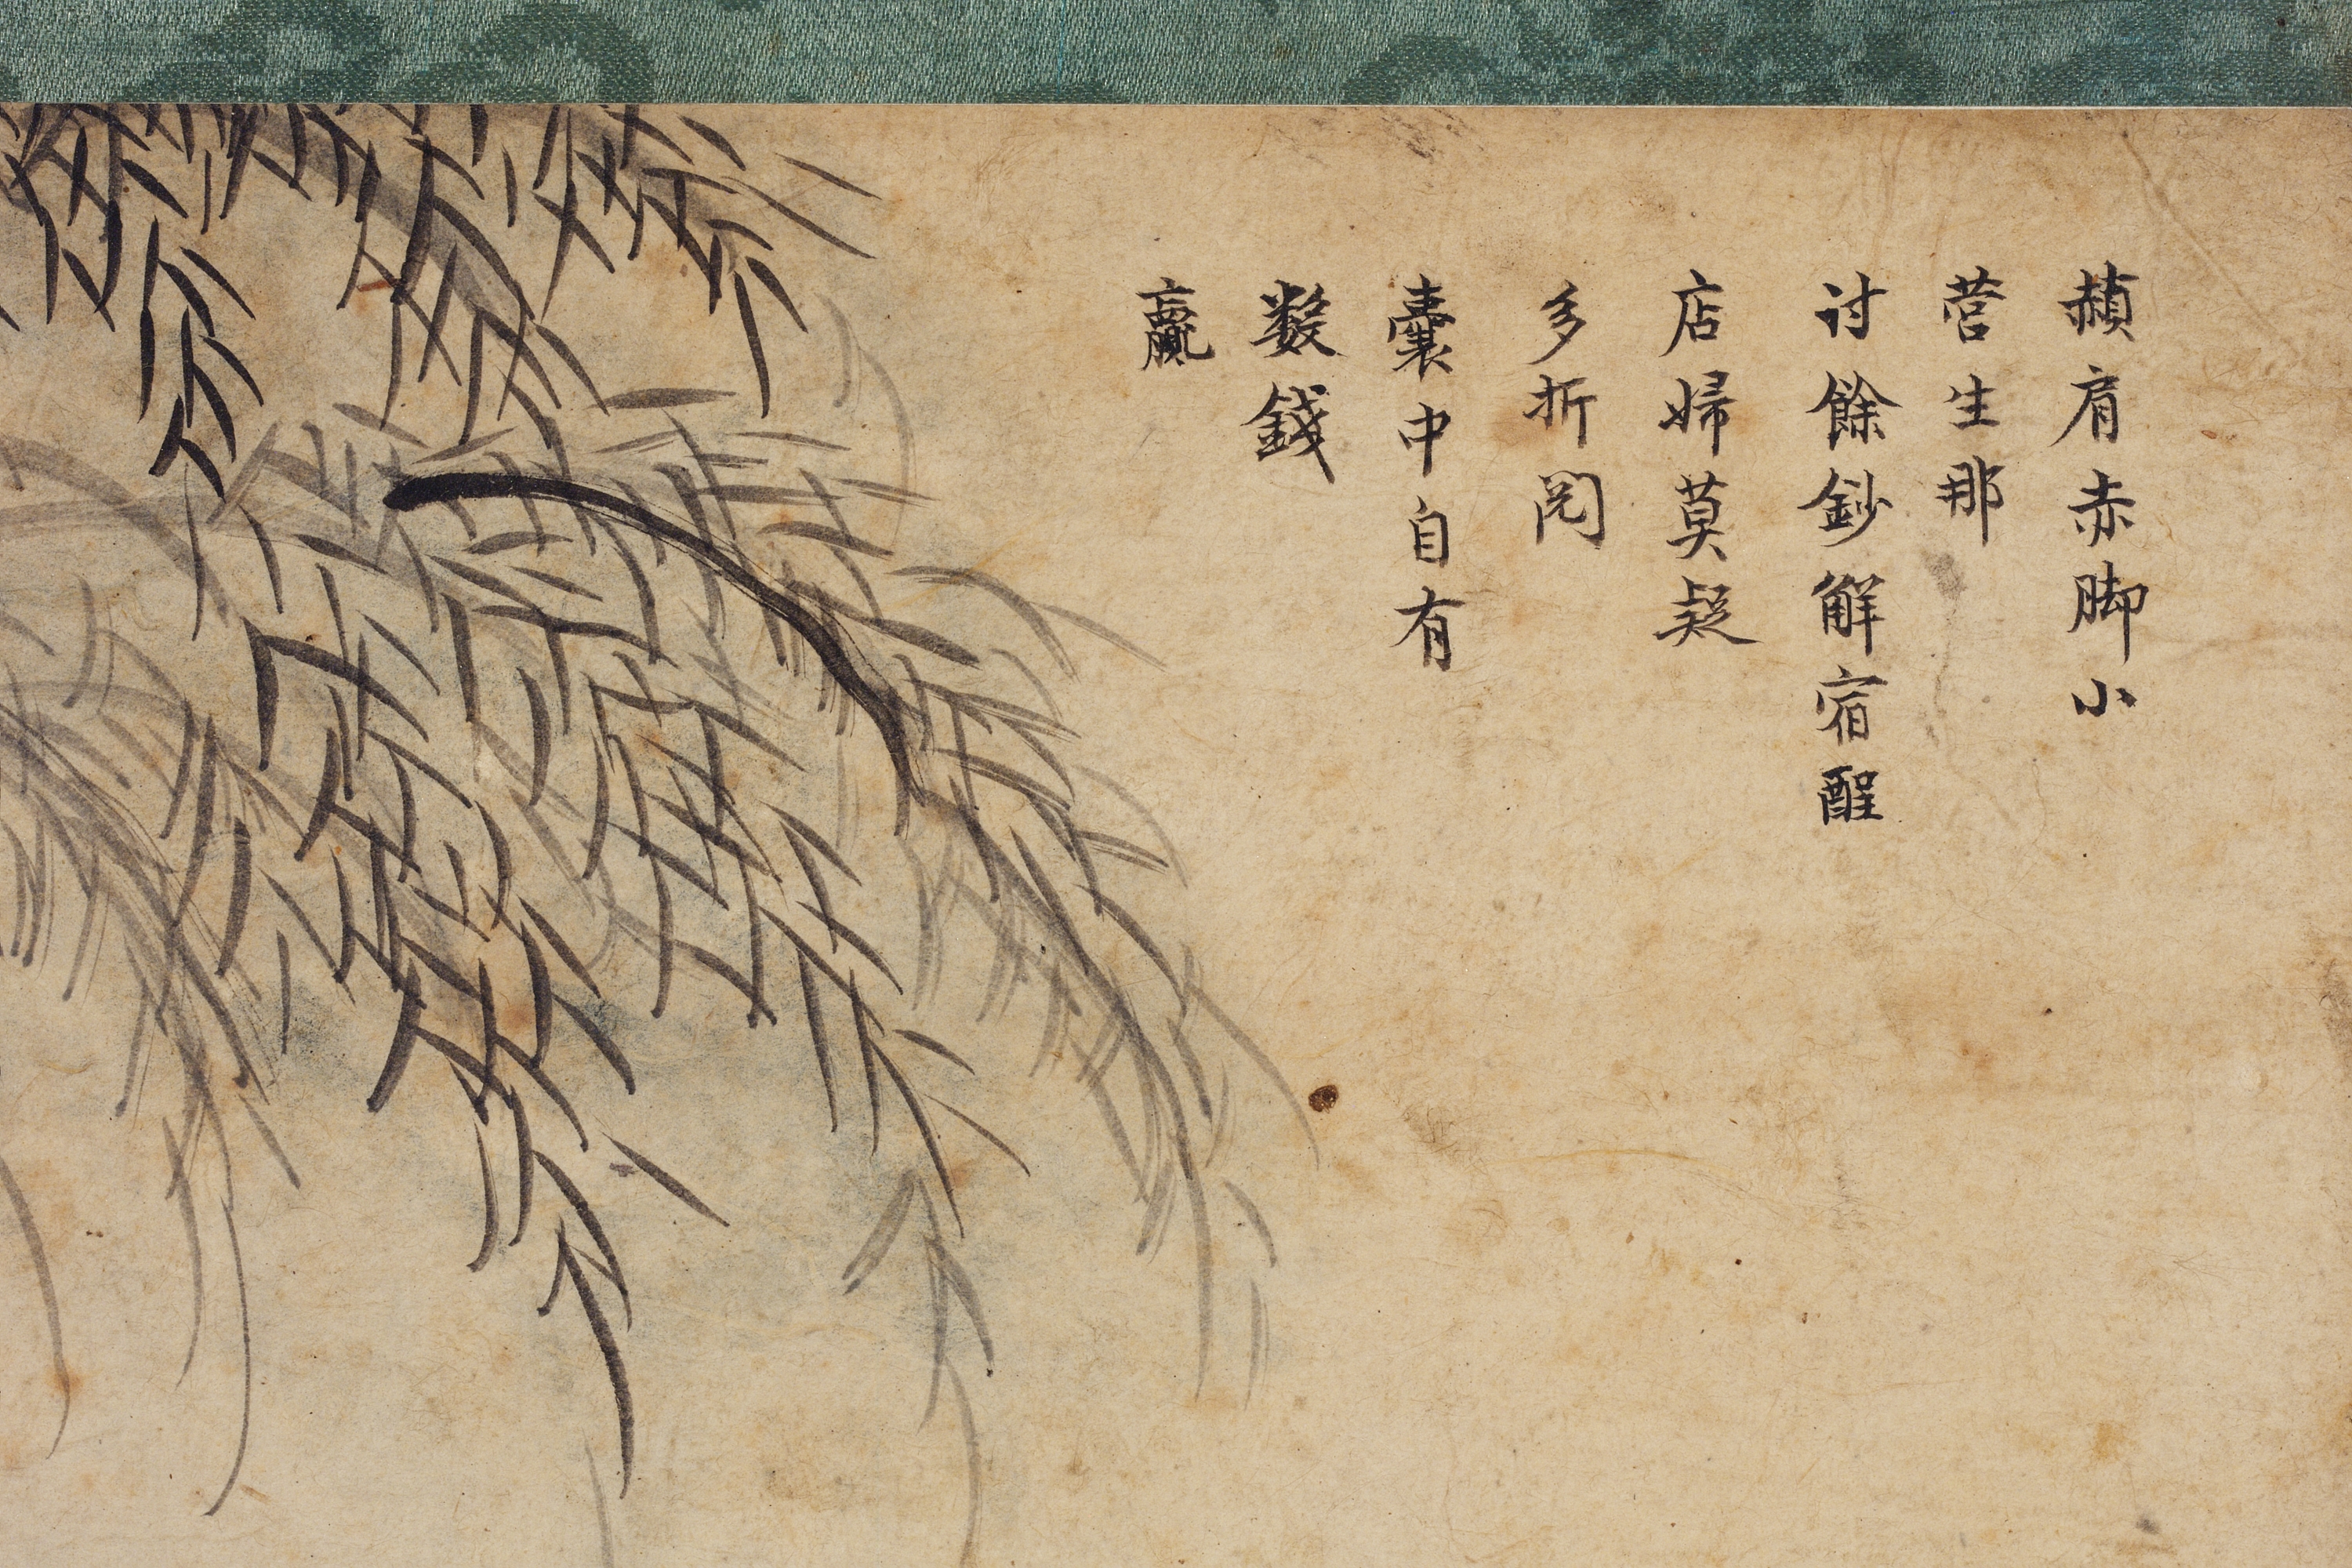 赬肩赤脚小
营生那
讨餘鈔觧宿酲
店婦莫疑
多折閲
囊中自有
数錢
贏